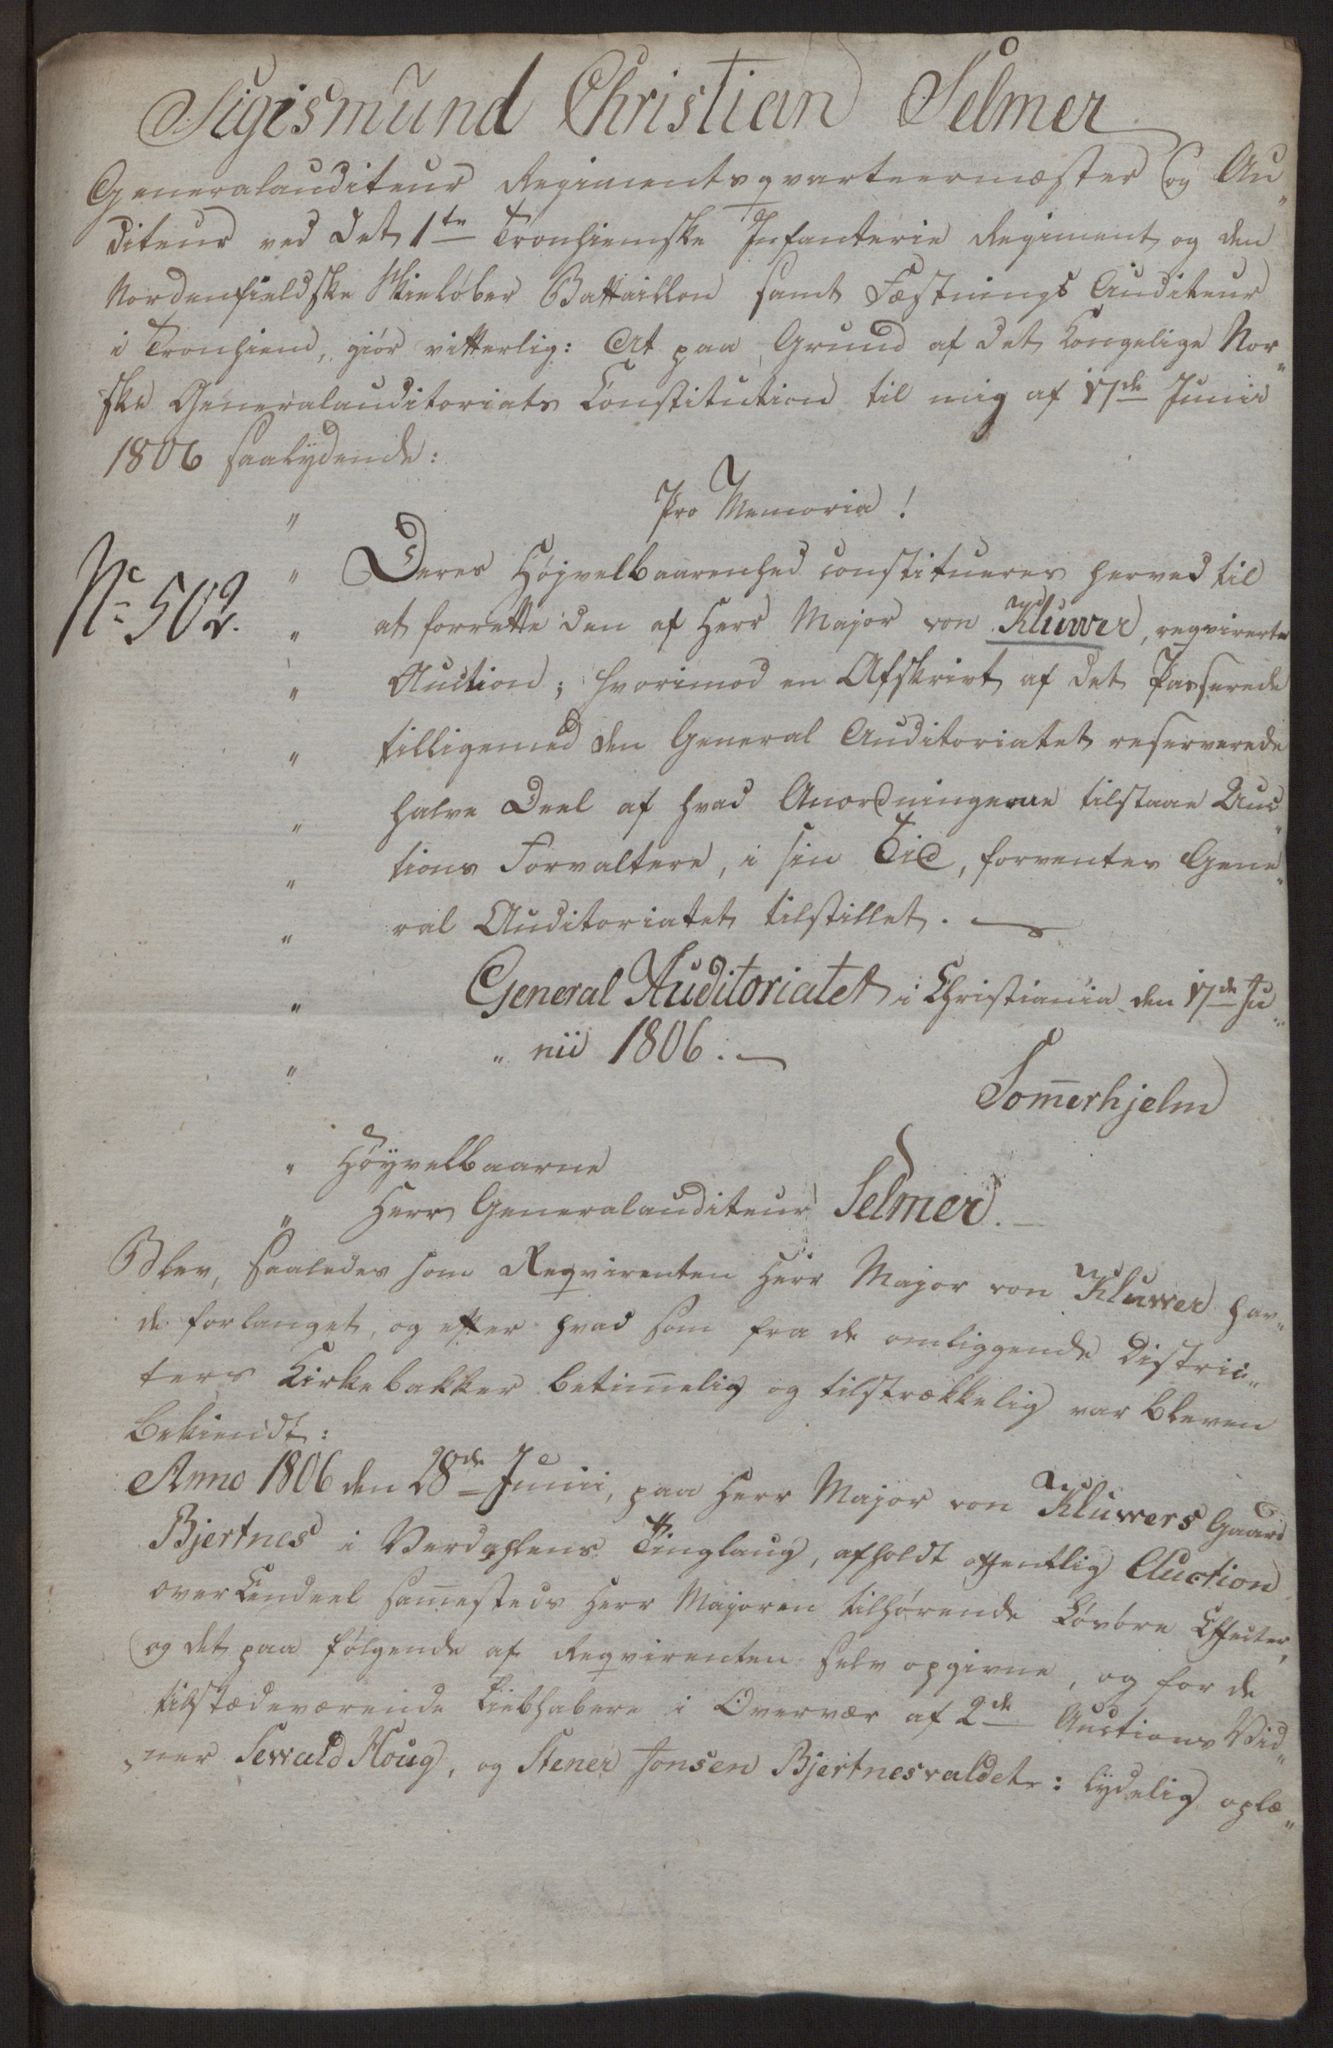 Sigismund Christian Selmer
Generalauditeur Regimentsqvarteermæster og Au„
diteur ved Det 1te Tronhiemske Infanterie Regiment og den
Nordenfieldske Skieløber Battaillon samt Fæstnings Auditeur
i Tronhiem, giør vitterlig: At paa Grund af det Kongelige Nor„
ske Generalauditoriats Constitution til mig af 17de Junii
1806 saalydende:
„ Pro Memoria!
„ Deres Højvelbaarenhed constitueres herved til
No 502.
„ at forrette den af Herr Major von Klüwer, reqvirerte
„ Auction; hvorimod en Afskrivt af det Passerede
„ tilligemed den General Auditoriatet reserverede
„ halve Deel af hvad Anordningerne tilstaae Auc„
„ tions Forvaltere, i sin Tid, forventes Gene„
„ ral Auditoriatet tilstillet.
„ General Auditoriatet i Christiania den 17de Ju„
„ „ nii 1806.
Som̅erhjelm
„ Høyvelbaarne
„ Herr Generalauditeur Selmer.
Blev, saaledes som Reqvirenten Herr Major von Klüwer hav„
de forlanget, og efter hvad som fra de omliggende Distric„
ters Kirkebakker betim̅elig og tilstrækkelig var bleven
bekiendt:
Anno 1806 den 28de Junii, paa Herr Major von Klüwers Gaard
Bjertnes i Verdahlens Tinglaug, afholdt offentlig Auction
over Eendeel sam̅esteds Herr Majoren tilhørende Løsøre Effecter,
og det paa følgende af Reqvirenten selv opgivne, og for de
tilstædeværende Liebhabere i Overvær af 2de Auctions Vid„
„ner Sewald Houg, og Stener Jonsen Bjertnesvaldet: lydelig oplæ„